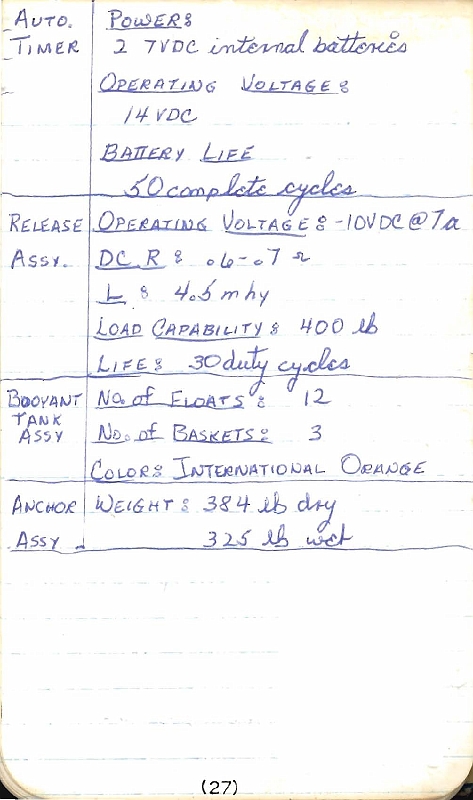 AUTO. POWER:
TIMER 2 7VDC internal batteries
OPERATING VOLTAGE:
14 VDC
BATTERY LIFE
50 complete cycles
RELEASE OPERATING VOLTAGE: -10VDC @ 7a
ASSY. DC R: .6-.7 Ω
L: 4.5 mhy
LOAD CAPABILITY: 400 lb
LIFE: 30 duty cycles
BOOYANT No. of FLOATS: 12
TANK
ASSY No. of BASKETS: 3
COLOR: INTERNATIONAL ORANGE
ANCHOR WEIGHT: 384 lb dry
ASSY. 325 lb wet
(27)